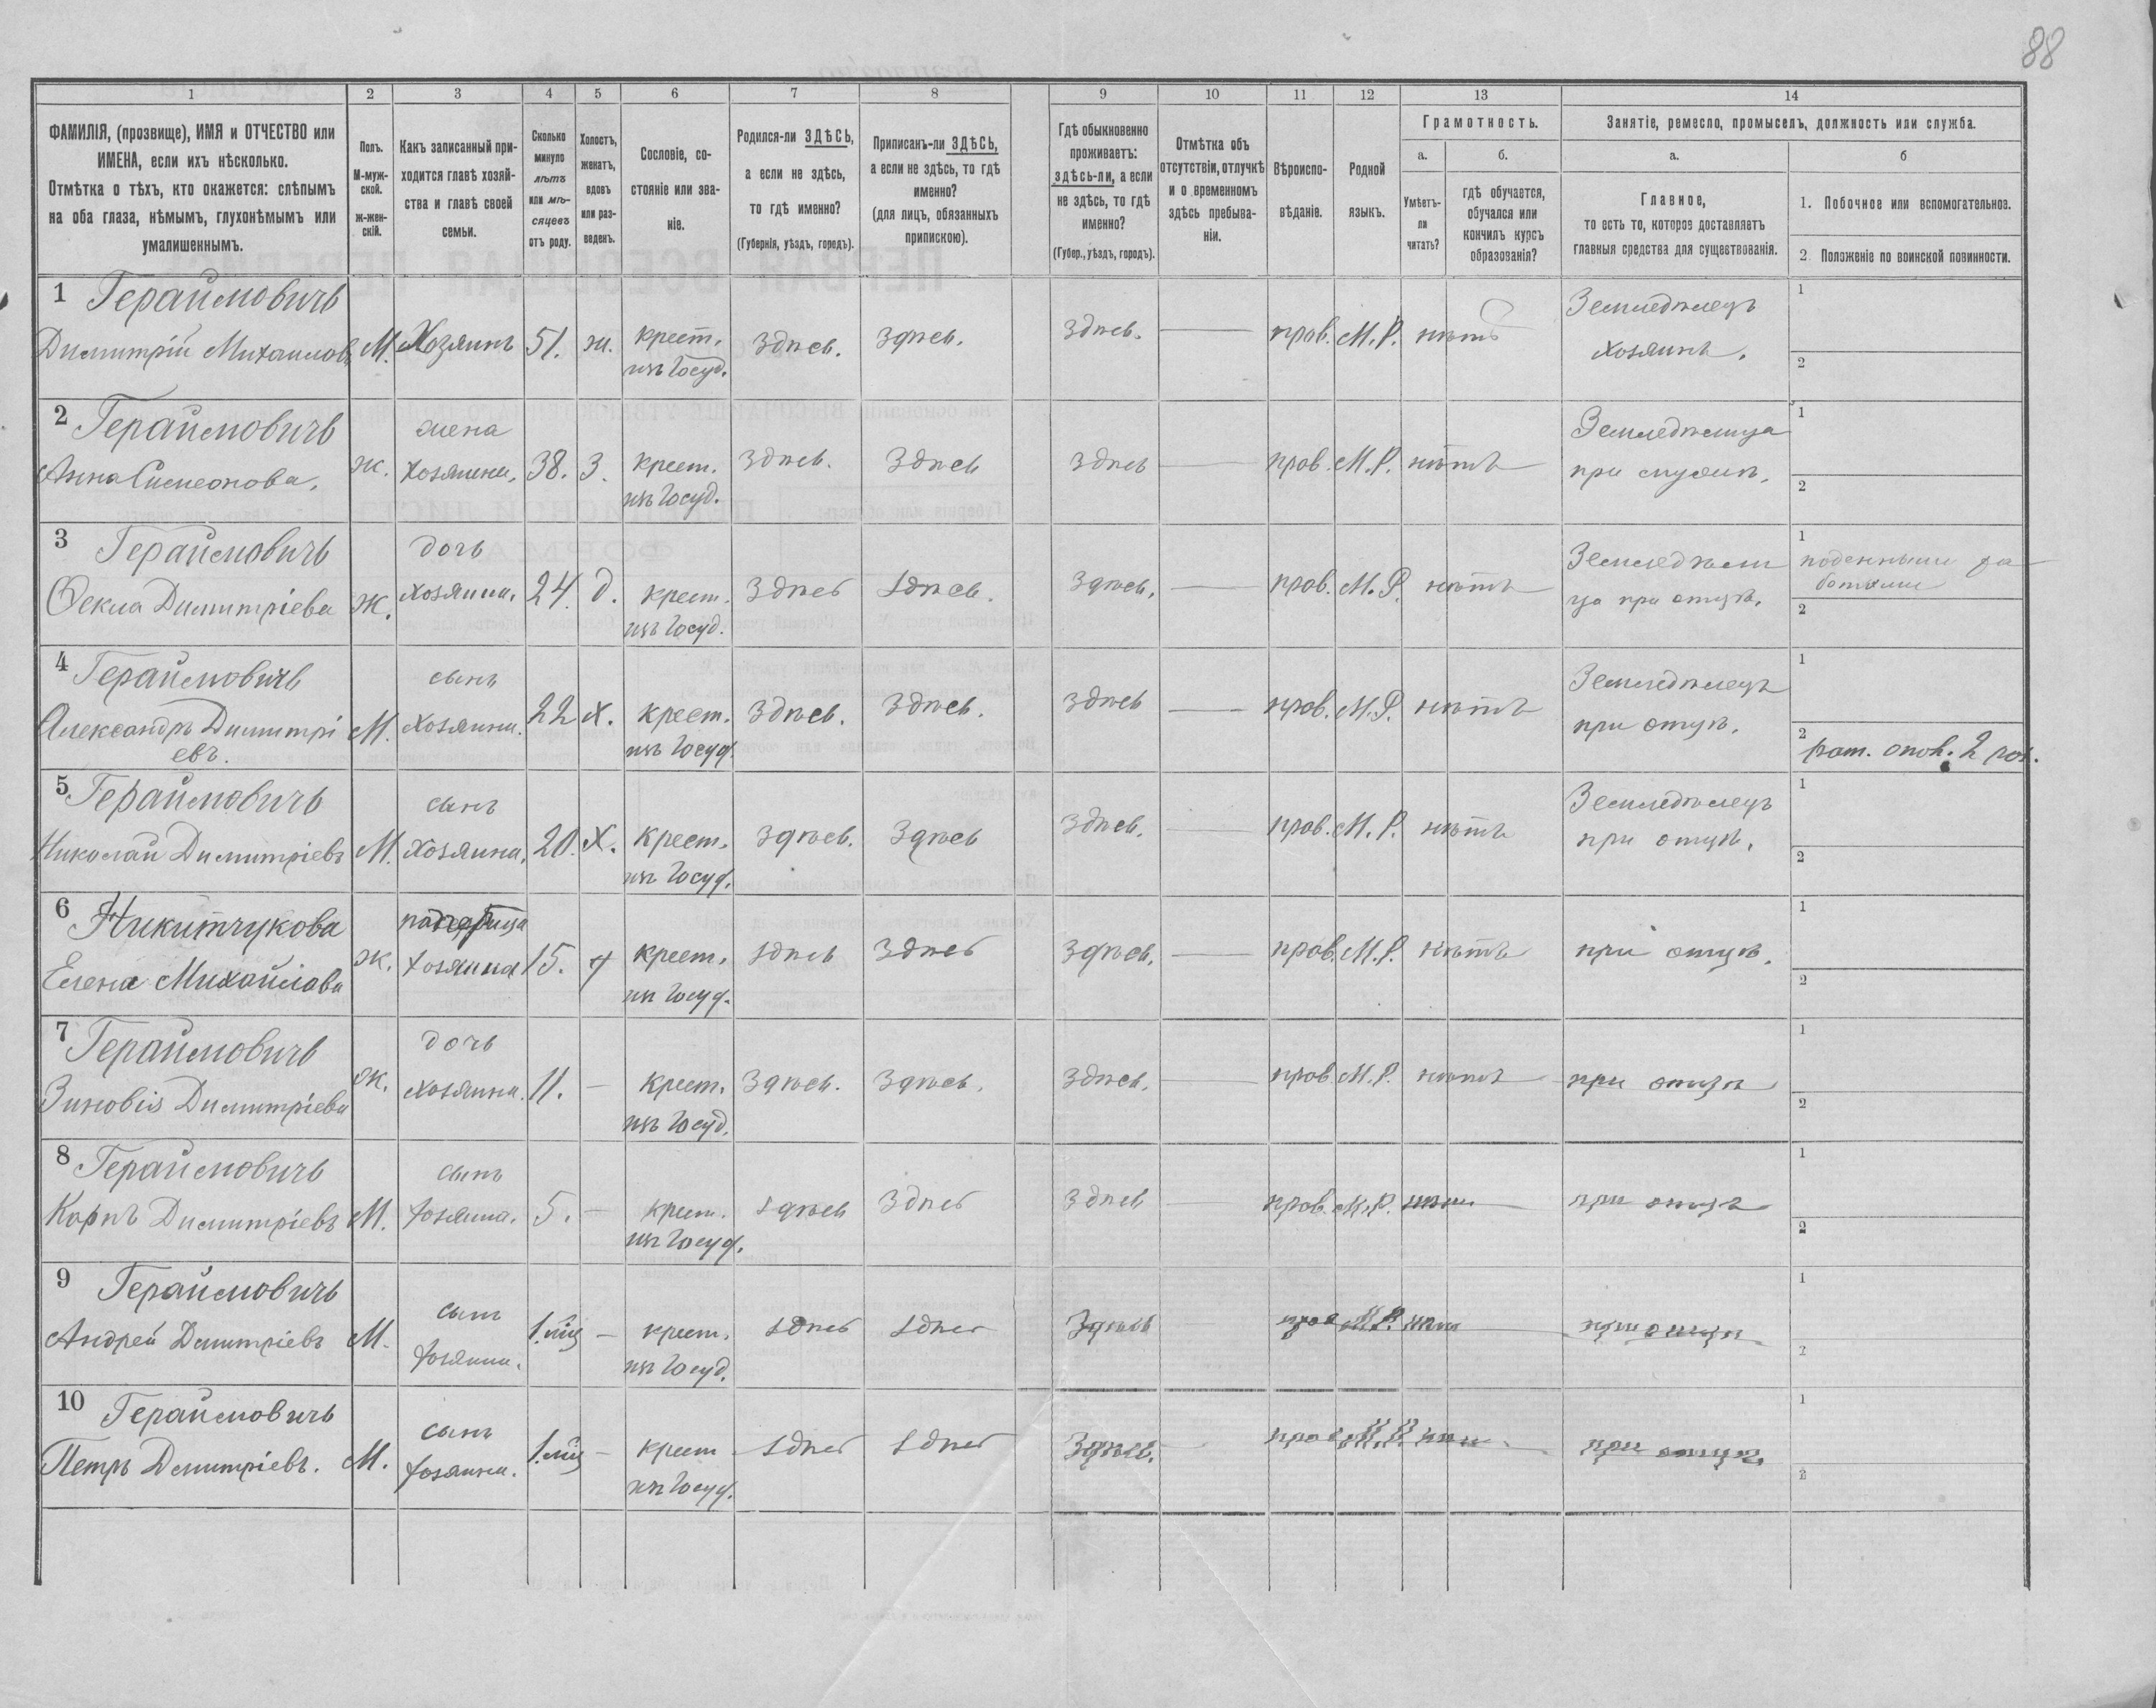 88
1 2 3 4 5 6 7 8 9 10 11 12 13 14
ФАМИЛІЯ, (прозвище), ИМЯ и ОТЧЕСТВО или
ИМЕНА, если ихъ нѣсколько.
Отмѣтка о тѣхъ, кто окажется: слѣпымъ
на оба глаза, нѣмымъ, глухонѣмымъ или
умалишеннымъ.
Полъ.
М-муж-
ской.
ж-жен-
скій.
Какъ записанный при-
ходится главѣ хозяй-
ства и главѣ своей
семьи.
Сколько
минуло
лѣтъ
или мѣ-
сяцевъ
отъ роду.
Холостъ,
женатъ,
вдовъ
или раз-
веденъ.
Сословіе, со-
стояніе или зва-
ніе.
Родился-ли ЗДѢСЬ,
а если не здѣсь,
то гдѣ именно?
(Губернія, уѣздъ, городъ).
Приписанъ-ли ЗДѢСЬ,
а если не здѣсь, то гдѣ
именно?
(для лицъ, обязанныхъ
припискою).
Гдѣ обыкновенно
проживаетъ:
здѣсь-ли, а если
не здѣсь, то гдѣ
именно?
(Губер., уѣздъ, городъ).
Отмѣтка объ
отсутствіи, отлучкѣ
и о временномъ
здѣсь пребыва-
ніи.
Вѣроиспо-
вѣданіе.
Родной
языкъ.
Грамотность.
а.
Умѣетъ-
ли
читать?
б.
гдѣ обучается,
обучался или
кончилъ курсъ
образованія?
Занятіе, ремесло, промыселъ, должность или служба.
а.
Главное,
то есть то, которое доставляетъ
главныя средства для существованія.
б
1. Побочное или вспомогательное.
2. Положеніе по воинской повинности.
1 Гераймовичъ
Димитрій Михаиловъ М. Хозяинъ 51. ж. крест. здѣсь. здѣсь. здѣсь. — прав. М.Р. нѣтъ Земледѣлецъ 1
изъ Госуд. хозяинъ. 2
2 Гераймовичъ жена Земледѣлица 1
Анна Симеонова. ж. хозяина. 38. З. крест. здѣсь. здѣсь здѣсь — прав. М.Р. нѣтъ при мужѣ. 2
изъ Госуд.
3 Гераймовичъ дочь Земледѣли 1 поденными ра-
ботами
Ѳекла Димитріева ж. хозяина. 24. д. крест. здѣсь здѣсь. здѣсь. — прав. М.Р. нѣтъ ца при отцѣ. 2
изъ Госуд.
4 Гераймовичъ сынъ Земледѣлецъ 1
Александръ Димитрі М. хозяина. 22 х. крест. здѣсь. здѣсь. здѣсь — прав. М.Р. нѣтъ при отцѣ. 2
евъ. изъ Госуд. рат. опол. 2 раз.
5 Гераймовичъ сынъ Земледѣлецъ 1
Николай Димитріевъ М. хозяина. 20. х. крест. здѣсь. здѣсь здѣсь. — прав. М.Р. нѣтъ при отцѣ. 2
изъ Госуд.
6 Никитчукова падчерица 1
Елена Михайлова ж. хозяина 15. крест. здѣсь здѣсь здѣсь. — прав. М.Р. нѣтъ при отцѣ. 2
изъ Госуд.
7 Гераймовичъ дочь 1
Зиновія Димитріева ж. хозяина. 11. — крест. здѣсь. здѣсь. здѣсь. — прав. М.Р. нѣтъ при отцѣ 2
изъ Госуд.
8 Гераймовичъ сынъ 1
Карпъ Димитріевъ М. хозяина. 5. — крест. здѣсь здѣсь здѣсь — прав. М.Р. нѣтъ при отцѣ 2
изъ Госуд.
9 Гераймовичъ сынъ 1
Андрей Димитріевъ М. хозяина. 1 мѣц — крест. здѣсь здѣсь здѣсь прав М.Р. нѣтъ при отцѣ 2
изъ Госуд.
10 Гераймовичъ сынъ 1
Петръ Димитріевъ. М. хозяина. 1 мѣц — крест здѣсь здѣсь здѣсь. — прав М.Р. нѣтъ при отцѣ 2
изъ Госуд.